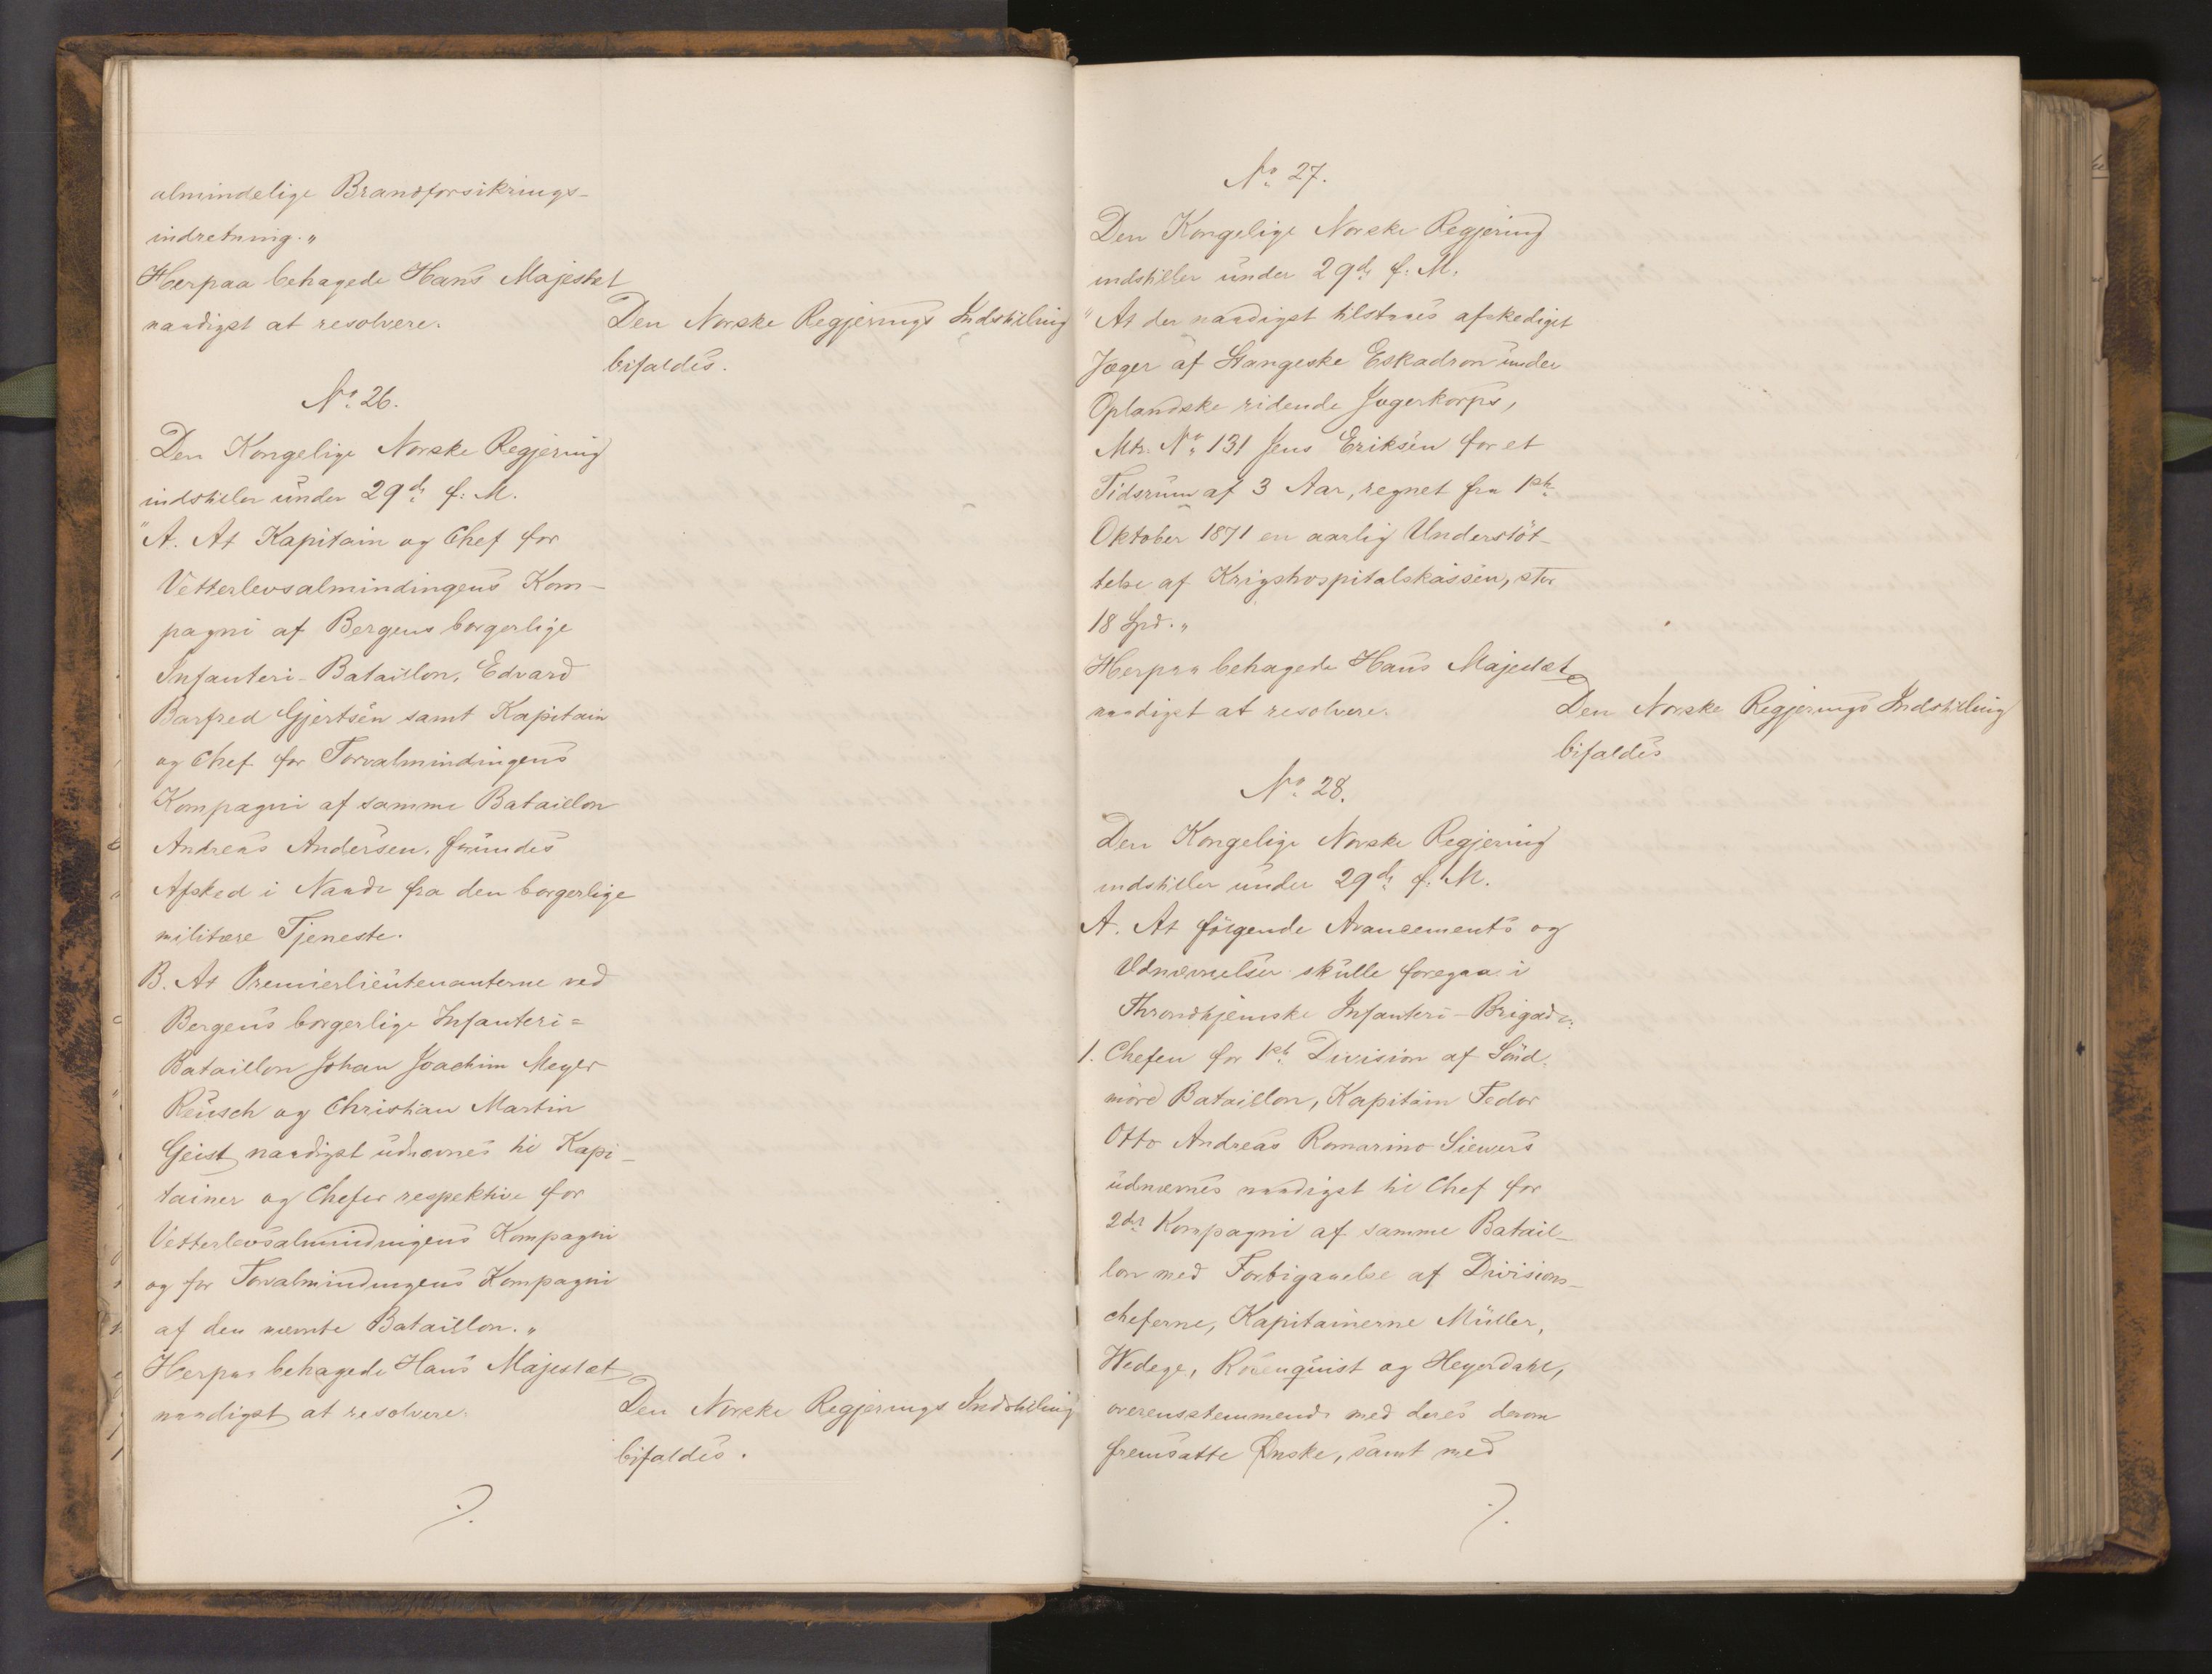 almindelige Brandforsikrings-
indretning."
Herpaa behagede Hans Majestet
naadigst at resolvere.
Den Norske Regjerings Indstilling
bifaldes.
No. 26.
Den Kongelige Norske Regjering
indstiller under 29de f. M.
"A. At Kapitain og Chef for
Vetterlevsalmindingens Kom-
pagni af Bergens borgerlige
Infanteri-Bataillon, Edvard
Barfred Gjertsen samt Kapitain
og Chef for Torvalmindingens
Kompagni af samme Bataillon
Andreas Andersen, forundes
Afsked i Naade fra den borgerlige
militære Tjeneste.
B. At Premierlieutenanterne ved
Bergens borgerlige Infanteri=
Bataillon Johan Joachim Meyer
Reusch og Christian Martin
Geist naadigst udnævnes til Kapi-
tainer og Chefer respektive for
Vetterlevsalmindingens Kompagni
og for Torvalmindingens Kompagni
af den nævnte Bataillon."
Herpaa behagede Hans Majestæt
naadigst at resolvere.
Den Norske Regjerings Indstilling
bifaldes.
No. 27.
Den Kongelige Norske Regjering
indstiller under 29de f. M.
"At der naadigst tilstaaes afskediget
Jæger af Stangeske Eskadron under
Oplandske ridende Jægerkorps,
Mtr. No. 131 Jens Eriksen for et
Tidsrum af 3 Aar, regnet fra 1ste
Oktober 1871 en aarlig Understöt-
telse af Krigshospitalskassen, stor
18 Spd."
Herpaa behagede Hans Majestæt
naadigst at resolvere.
Den Norske Regjerings Indstilling
bifaldes
No. 28.
Den Kongelige Norske Regjering
indstiller under 29de f. M.
A. At fölgende Avancements og
Udnævnelser skulle foregaa i
Throndhjemske Infanteri-Brigade:
1. Chefen for 1ste Division af Sönd-
möre Bataillon, Kapitain Fedor
Otto Andreas Romarino Siewers
udnævnes naadigst til Chef for
2det Kompagni af samme Batail-
lon med Forbigaaelse af Divisions-
cheferne, Kapitainerne Müller,
Wedege, Rosenquist og Heyerdahl,
overensstemmende med deres derom
fremsatte Ønske, samt med